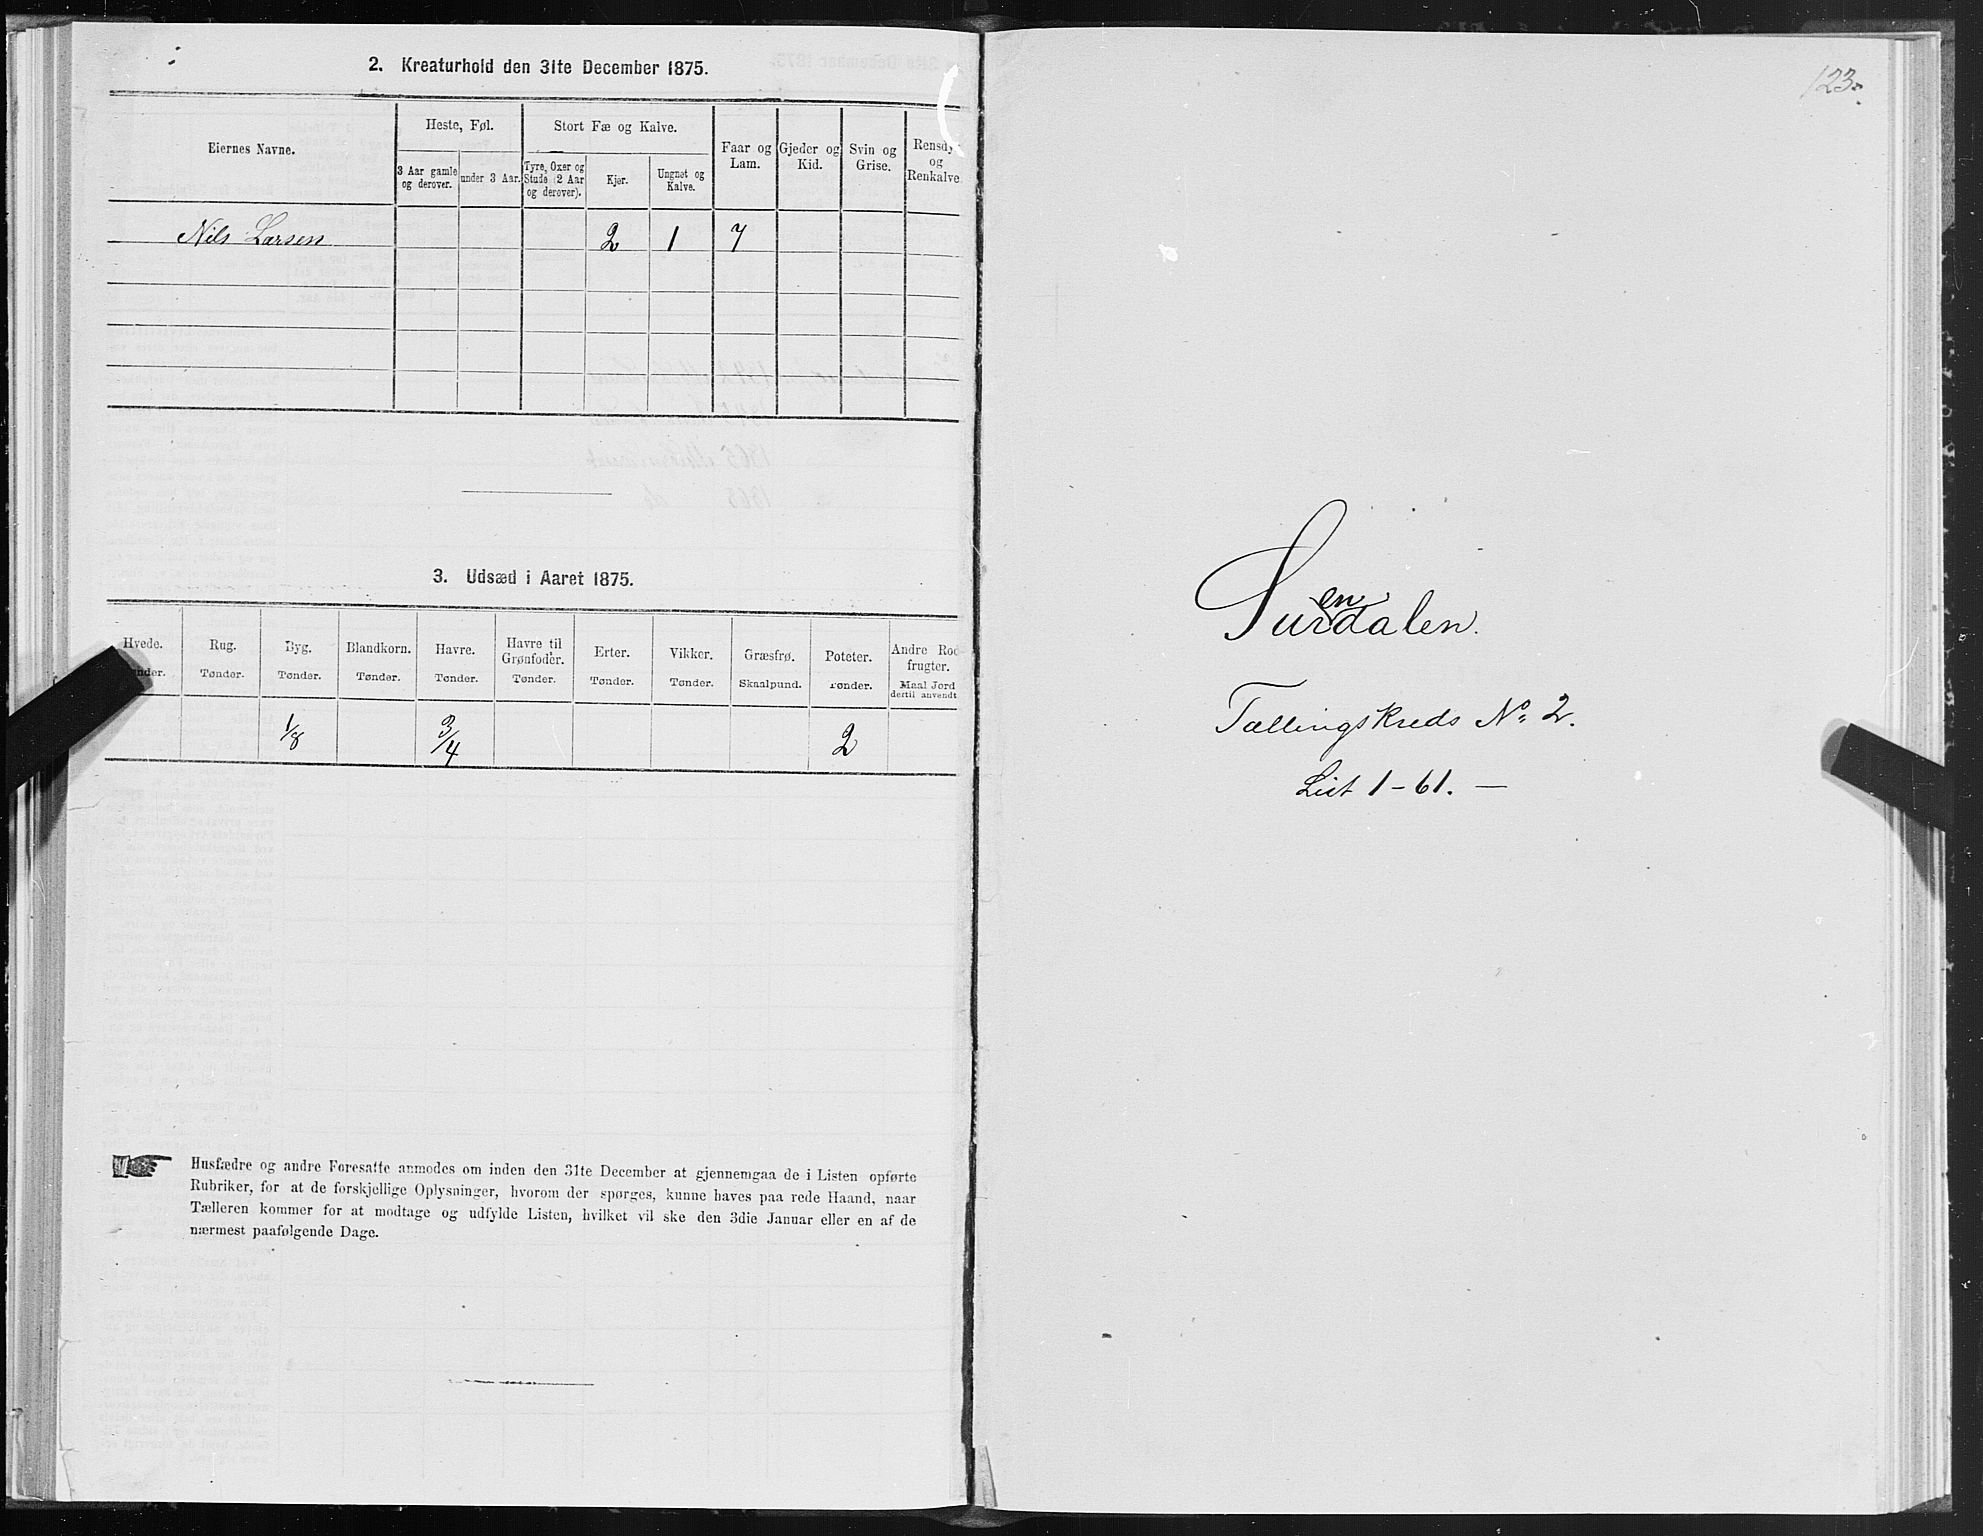 2. Kreaturhold den 31te December 1875.
Eiernes Navne.
Heste, Føl.
Stort Fæ og Kalve.
Faar og Lam.
Gjeder og Kid.
Svin og Grise.
Rensdy og Renkalve
3 Aar gamle og derover.
under 3 Aar.
Tyre, Oxer og Stude (2 Aar og derover).
Kjør.
Ungnøt og Kalve.
Nils Larsen 2 1 7
3. Udsæd i Aaret 1875.
Hvede. Rug. Byg. Blandkorn. Havre. Havre til Grønfoder. Erter. Vikker. Græsfrø. Poteter. Andre Rod frugter.
Tønder. Tønder. Tønder. Tønder. Tønder. Tønder. Tønder. Skaalpund. Tønder. Maal Jord dertil anvendt
1/8 3/4 2
Husfædre og andre Foresatte anmodes om inden den 31te December at gjennemgaa de i Listen opførte
Rubriker, for at de forskjellige Oplysninger, hvorom der spørges, kunne haves paa rede Haand, naar
Tælleren kommer for at modtage og udfylde Listen, hvilket vil ske den 3die Januar eller en af de
nærmest paafølgende Dage.
123.
en
Surdalen.
Tællingskreds No 2.
List 1-61. —